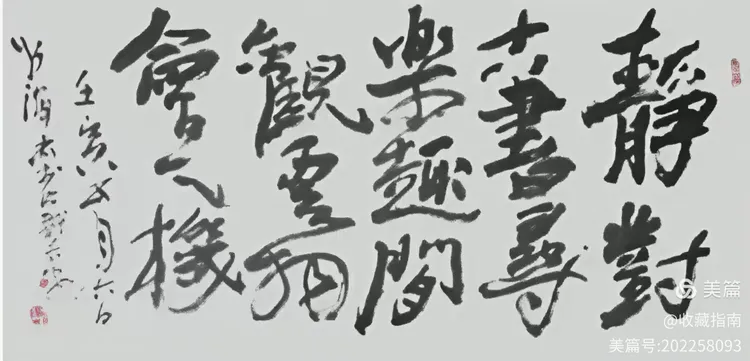 靜對
古書尋
樂趣閒
觀雲物
會天機
壬寅五月六日
美篇
@收藏指南
美篇号:202258093